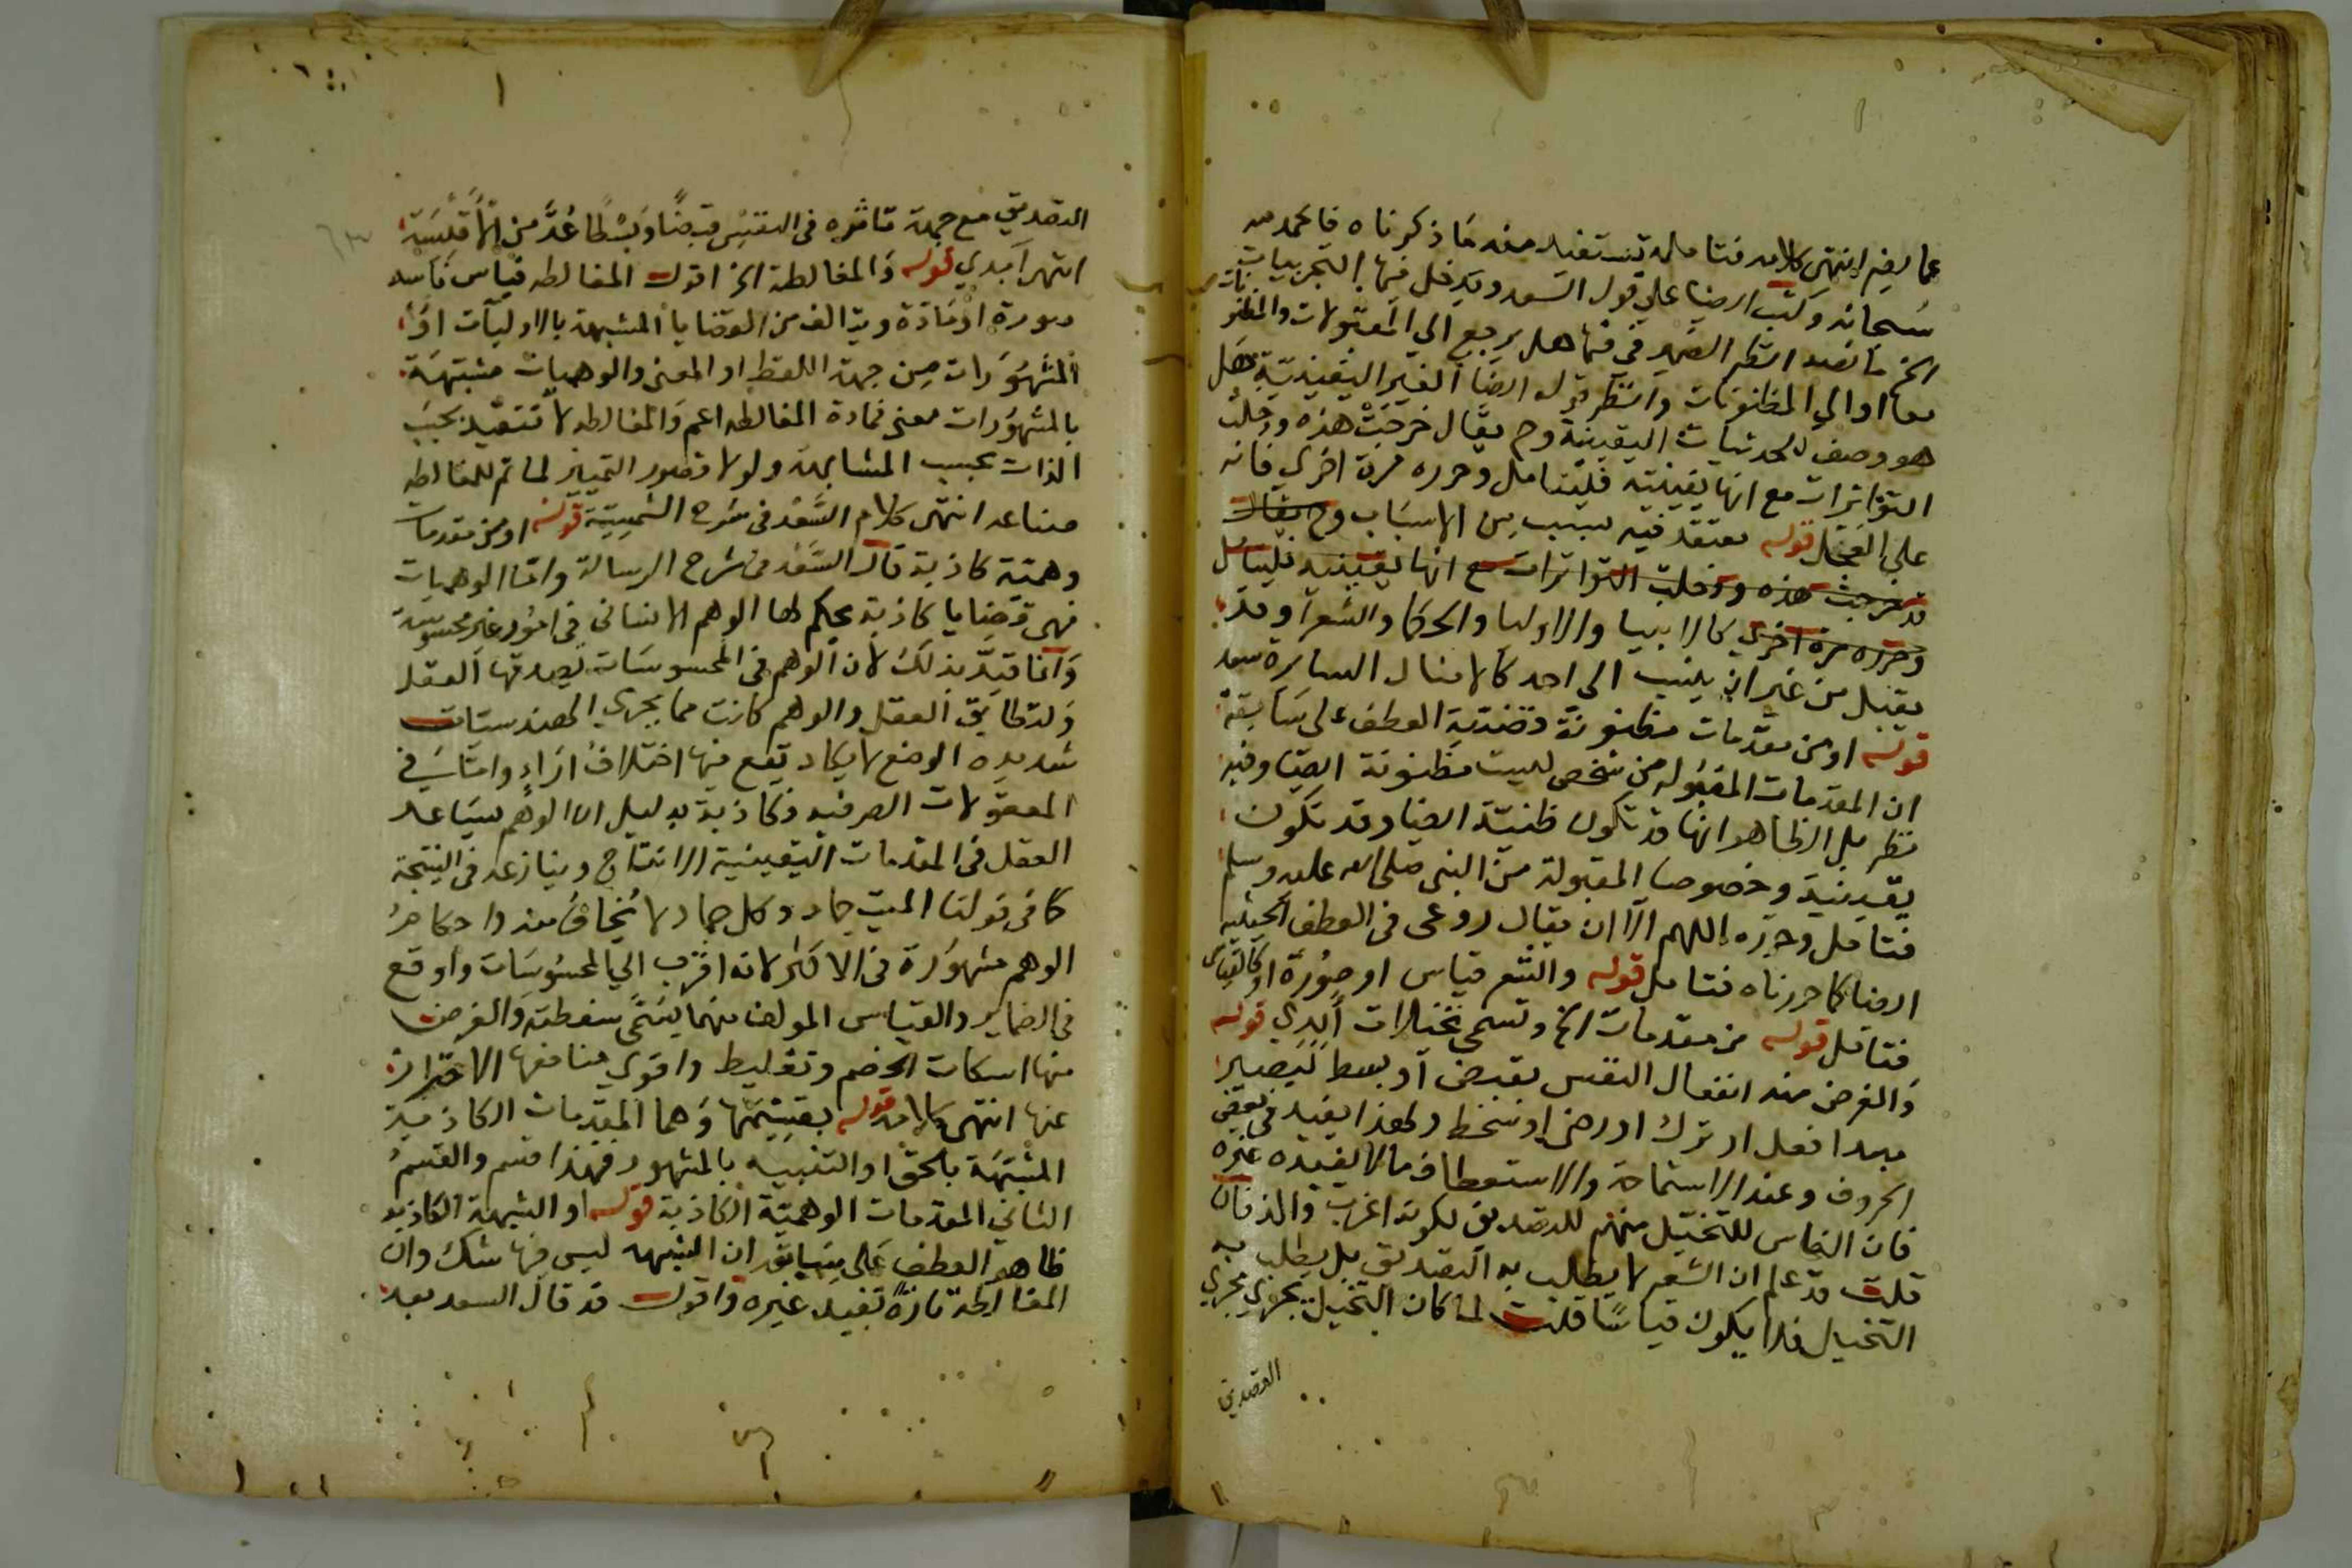 عما يفيد انتهى كلامه فتامله تستفيد منه ما ذكرناه فالحمد لله
سبحانه وكتب ايضا على قول السعد ويدخل فيها التجربيات
الخ ما نصه انظر الضمير في فيها هل يرجع الى المقبولات والمظنونات
معا او الى المظنونات وانظر قوله ايضا الغير اليقينية هل
هو وصف للحدسيات اليقينية وح يقال خرجت هذه ودخلت
التواترات مع انها يقينية فليتامل وحرره مرة اخرى فانه
على العجل قوله معتقد فيه لسبب من الاسباب وح يقال
قد خرجت هذه ودخلت التواترات مع انها يقينية فليتامل
وحرره مرة اخرى كالانبيا والاوليا والحكما والشعرا وقد
يقبل من غير ان ينسب الى احد كالامثال السايرة سعد
قوله او من مقدمات مظنونة قضية العطف على سابقه
ان المقدمات المقبوله من شخص ليست مظنونة ايضا وفيه
نظر بل الظاهر انها قد تكون ظنية ايضا وقد تكون
يقينية وخصوصا المقبولة من النبي صلى الله عليه وسلم
فتامل وحرره اللهم الا ان يقال روعى في العطف الحيثيه
ايضا كما حررناه فتامل قوله والشعر قياس او صورة او كالقياس
فتامل قوله من مقدمات الخ وتسمى تخيلات أبدي قوله
والغرض منه انفعال النفس بقبض او بسط ليصير
مبدا فعل او ترك او رضى او سخط ولهذا يفيد في بعض
الحروف وعند الاستماحة والاستعطاف ما لا يفيده غيره
فان الناس للتخيل منهم للتصديق لكونه اغرب والذ فان
قلت قد علم ان الشعر لا يطلب به التصديق بل يطلب به
التخييل فلا يكون قياسا قلت لما كان التخييل يجري مجرى
التصديق
٦٣
التصديق مع جهة تاثيره في النفس قبضا وبسطا عد من الاقيسة
انتهى أبدي قوله والمغالطة الخ اقول المغالطه قياس فاسد
صورة او مادة ويتالف من القضايا المشبهة بالاوليات او
المشهورات من جهة اللفظ او المعنى والوهميات مشتبهة
بالمشهورات معنى فمادة المغالطه اعم والمغالطه لا تتقيد بحسب
الذات بحسب المشابهة ولولا قصور التمييز لما تم للمغالطه
صناعه انتهى كلام السعد في شرح الشمسية قوله او من مقدمات
وهمية كاذبة قال السعد في شرح الرسالة واما الوهميات
فهي قضايا كاذبة يحكم لها الوهم الانساني في امور غير محسوسة
وانما قيد بذلك لان الوهم في المحسوسات يصدقها العقل
ولتطابق العقل والوهم كانت مما يجري الهندسيات
شديده الوضع لا يكاد يقع فيها اختلاف اراء وامّا في
المعقولات الصرفيه فكاذبة بدليل ان الوهم يساعد
العقل في المقدمات اليقينية الانتاج وينازعه في النتيجة
كما في قولنا الميت جماد وكل جماد لا يخاف منه واحكام
الوهم مشهورة في الاكثر لانه اقرب الى المحسوسات واوقع
في الضماير والقياس المولف منهما يسمى سفطة والغرض
منها اسكات الخصم وتغليط واقوى منافعها الاحتراز
عنها انتهى كلامه قوله بقسميها وهما المقدمات الكاذبة
المشبهة بالحق او التشبيه بالمشهور فهذا قسم والقسم
الثاني المقدمات الوهمية الكاذبة قوله او الشبهة الكاذبه
ظاهر العطف على سابقه ان الشبهه ليس فيها شك وان
المغالطة تارة تفيد غيره واقول قد قال السعد بعد